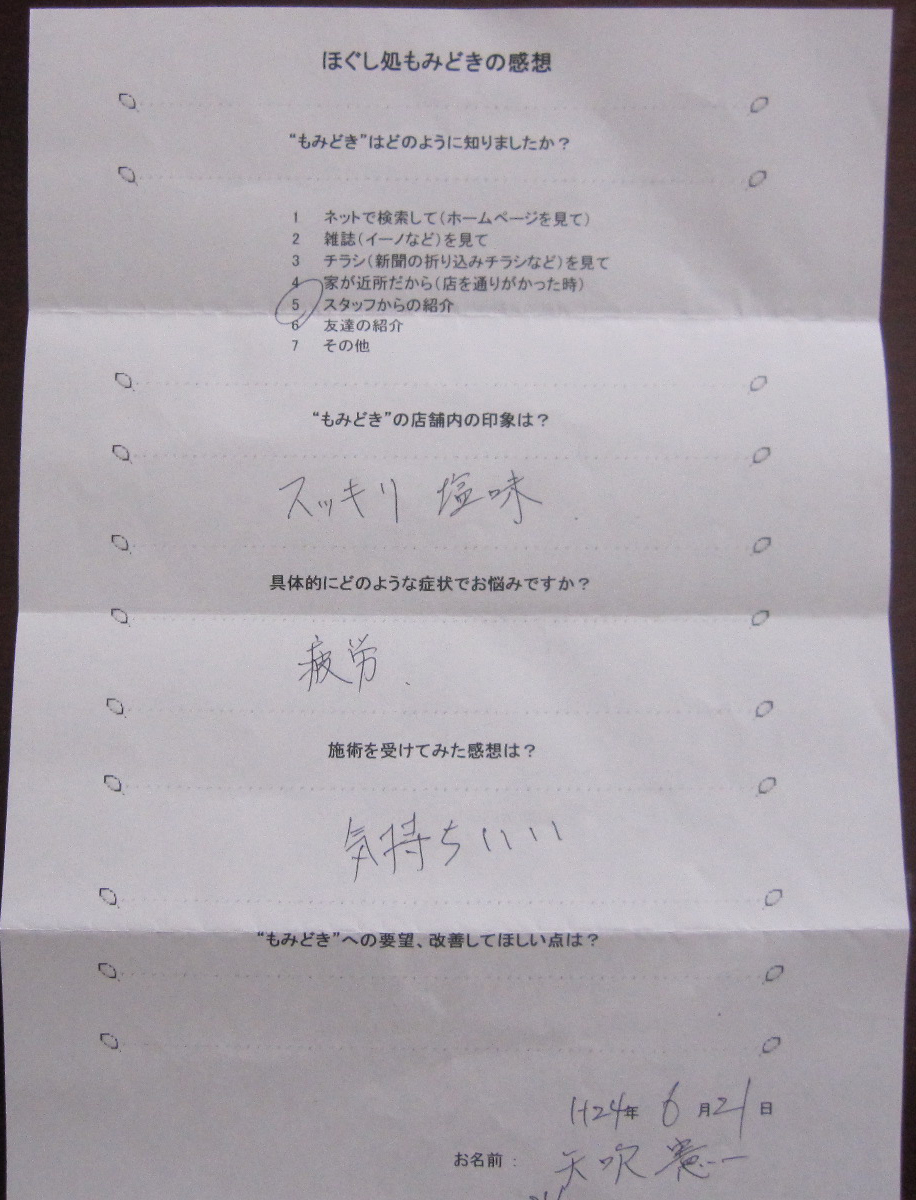 ほぐし処もみどきの感想
“もみどき”はどのように知りましたか？
1 ネットで検索して（ホームページを見て）
2 雑誌（イーノなど）を見て
3 チラシ（新聞の折り込みチラシなど）を見て
4 家が近所だから（店を通りがかった時）
5 スタッフからの紹介
6 友達の紹介
7 その他
“もみどき”の店舗内の印象は？
スッキリ 塩味.
具体的にどのような症状でお悩みですか？
疲労.
施術を受けてみた感想は？
気持ちいいい
“もみどき”への要望、改善してほしい点は？
H24年 6月21日
お名前： 矢吹